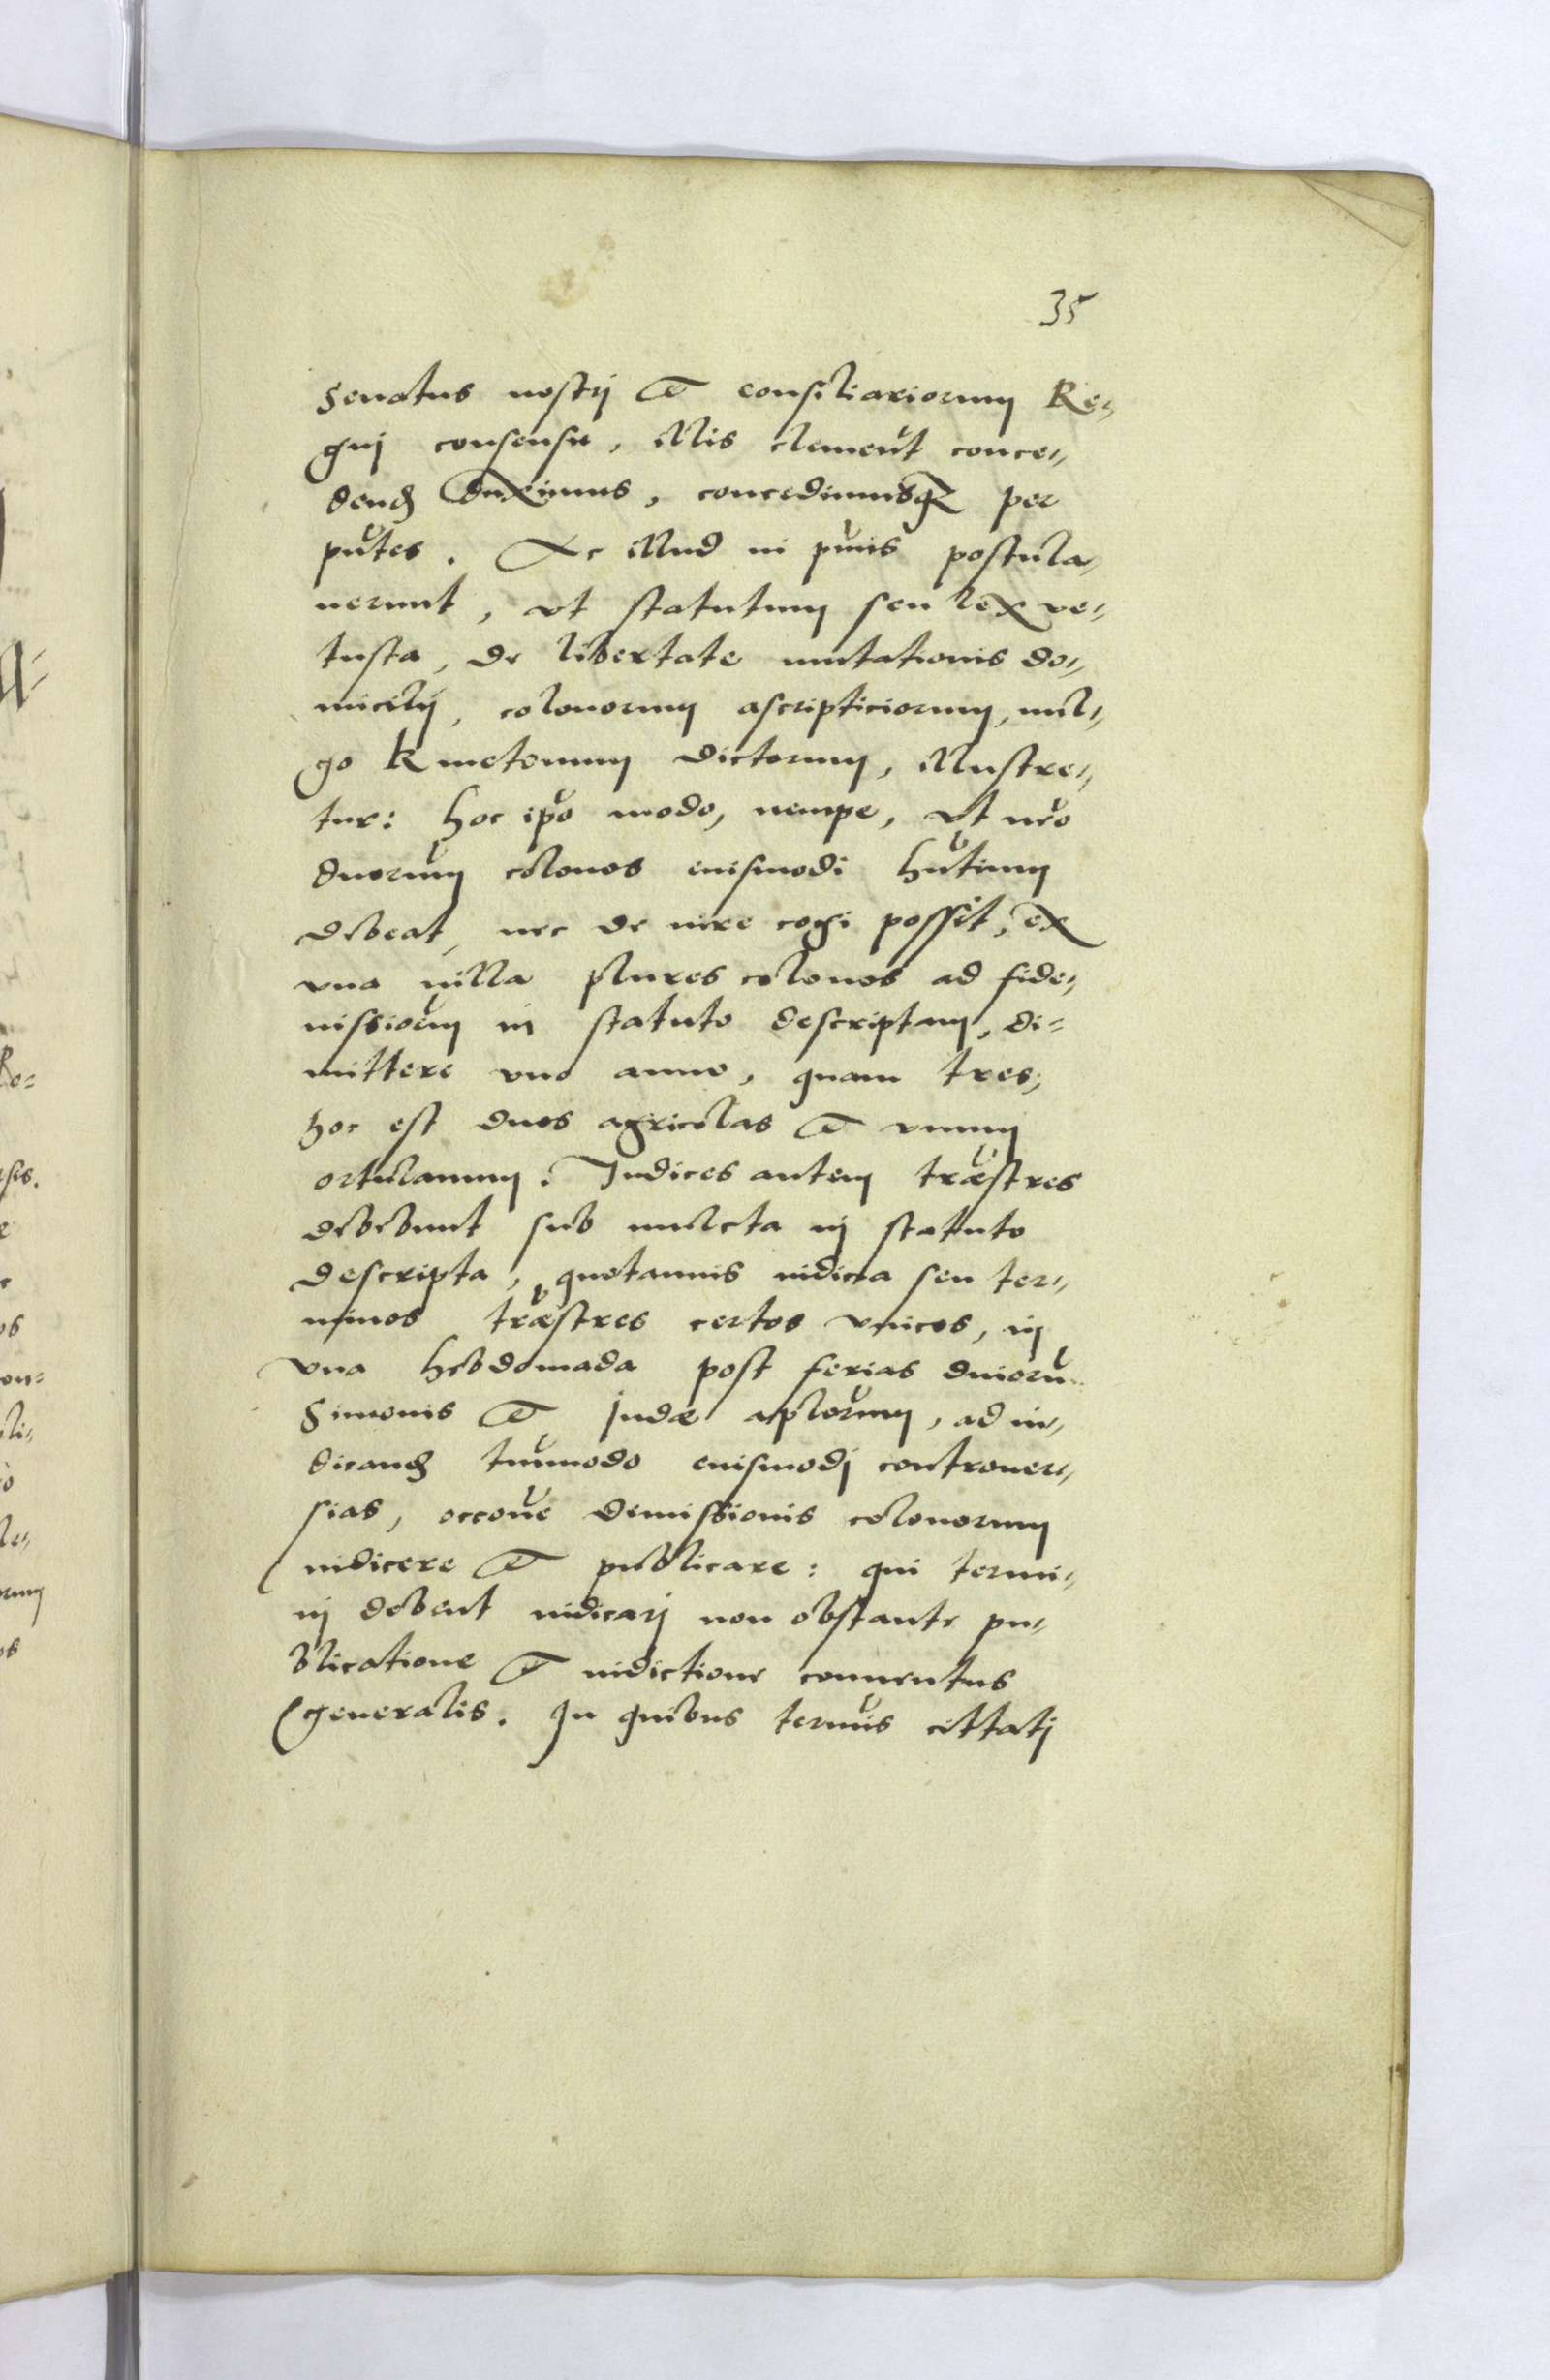 35
Senatus nostrj et consiliariorum Re„
gnj consensu, illis clement conce„
dend duximus, concedimusq per
pntes. Ac illud in pmis postula„
uerunt, vt statutum seu lex ve„
tusta, de libertate mutationis do„
micilij, colonorum ascripticiorum, uul„
go Kmetonum dictorum, illustre„
tur: hoc ipo modo, nempe, vt nro
duorum colonos eiusmodi hntium
debeat, nec de iure cogi possit, ex
vna uilla plures colonos ad fide„
iussiorem in statuto descriptam, di=
mittere vno anno, quam tres,
hoc est duos agricolas et vnum
ortulanum. Judices autem træstres
debebunt sub mulcta in statuto
descripta, quotannis iudicia seu ter„
minos træstres certos vnicos, in
vna hebdomada post ferias diuoru
Simonis et Judæ aplorum, ad iu„
dicand tmmodo eiusmodj controuer„
sias, occone dimissionis colonorum
indicere et publicare: qui termi„
nj debent iudicarj non obstante pu„
blicatione et indictione conuentus
generalis. In quibus termis cittatj